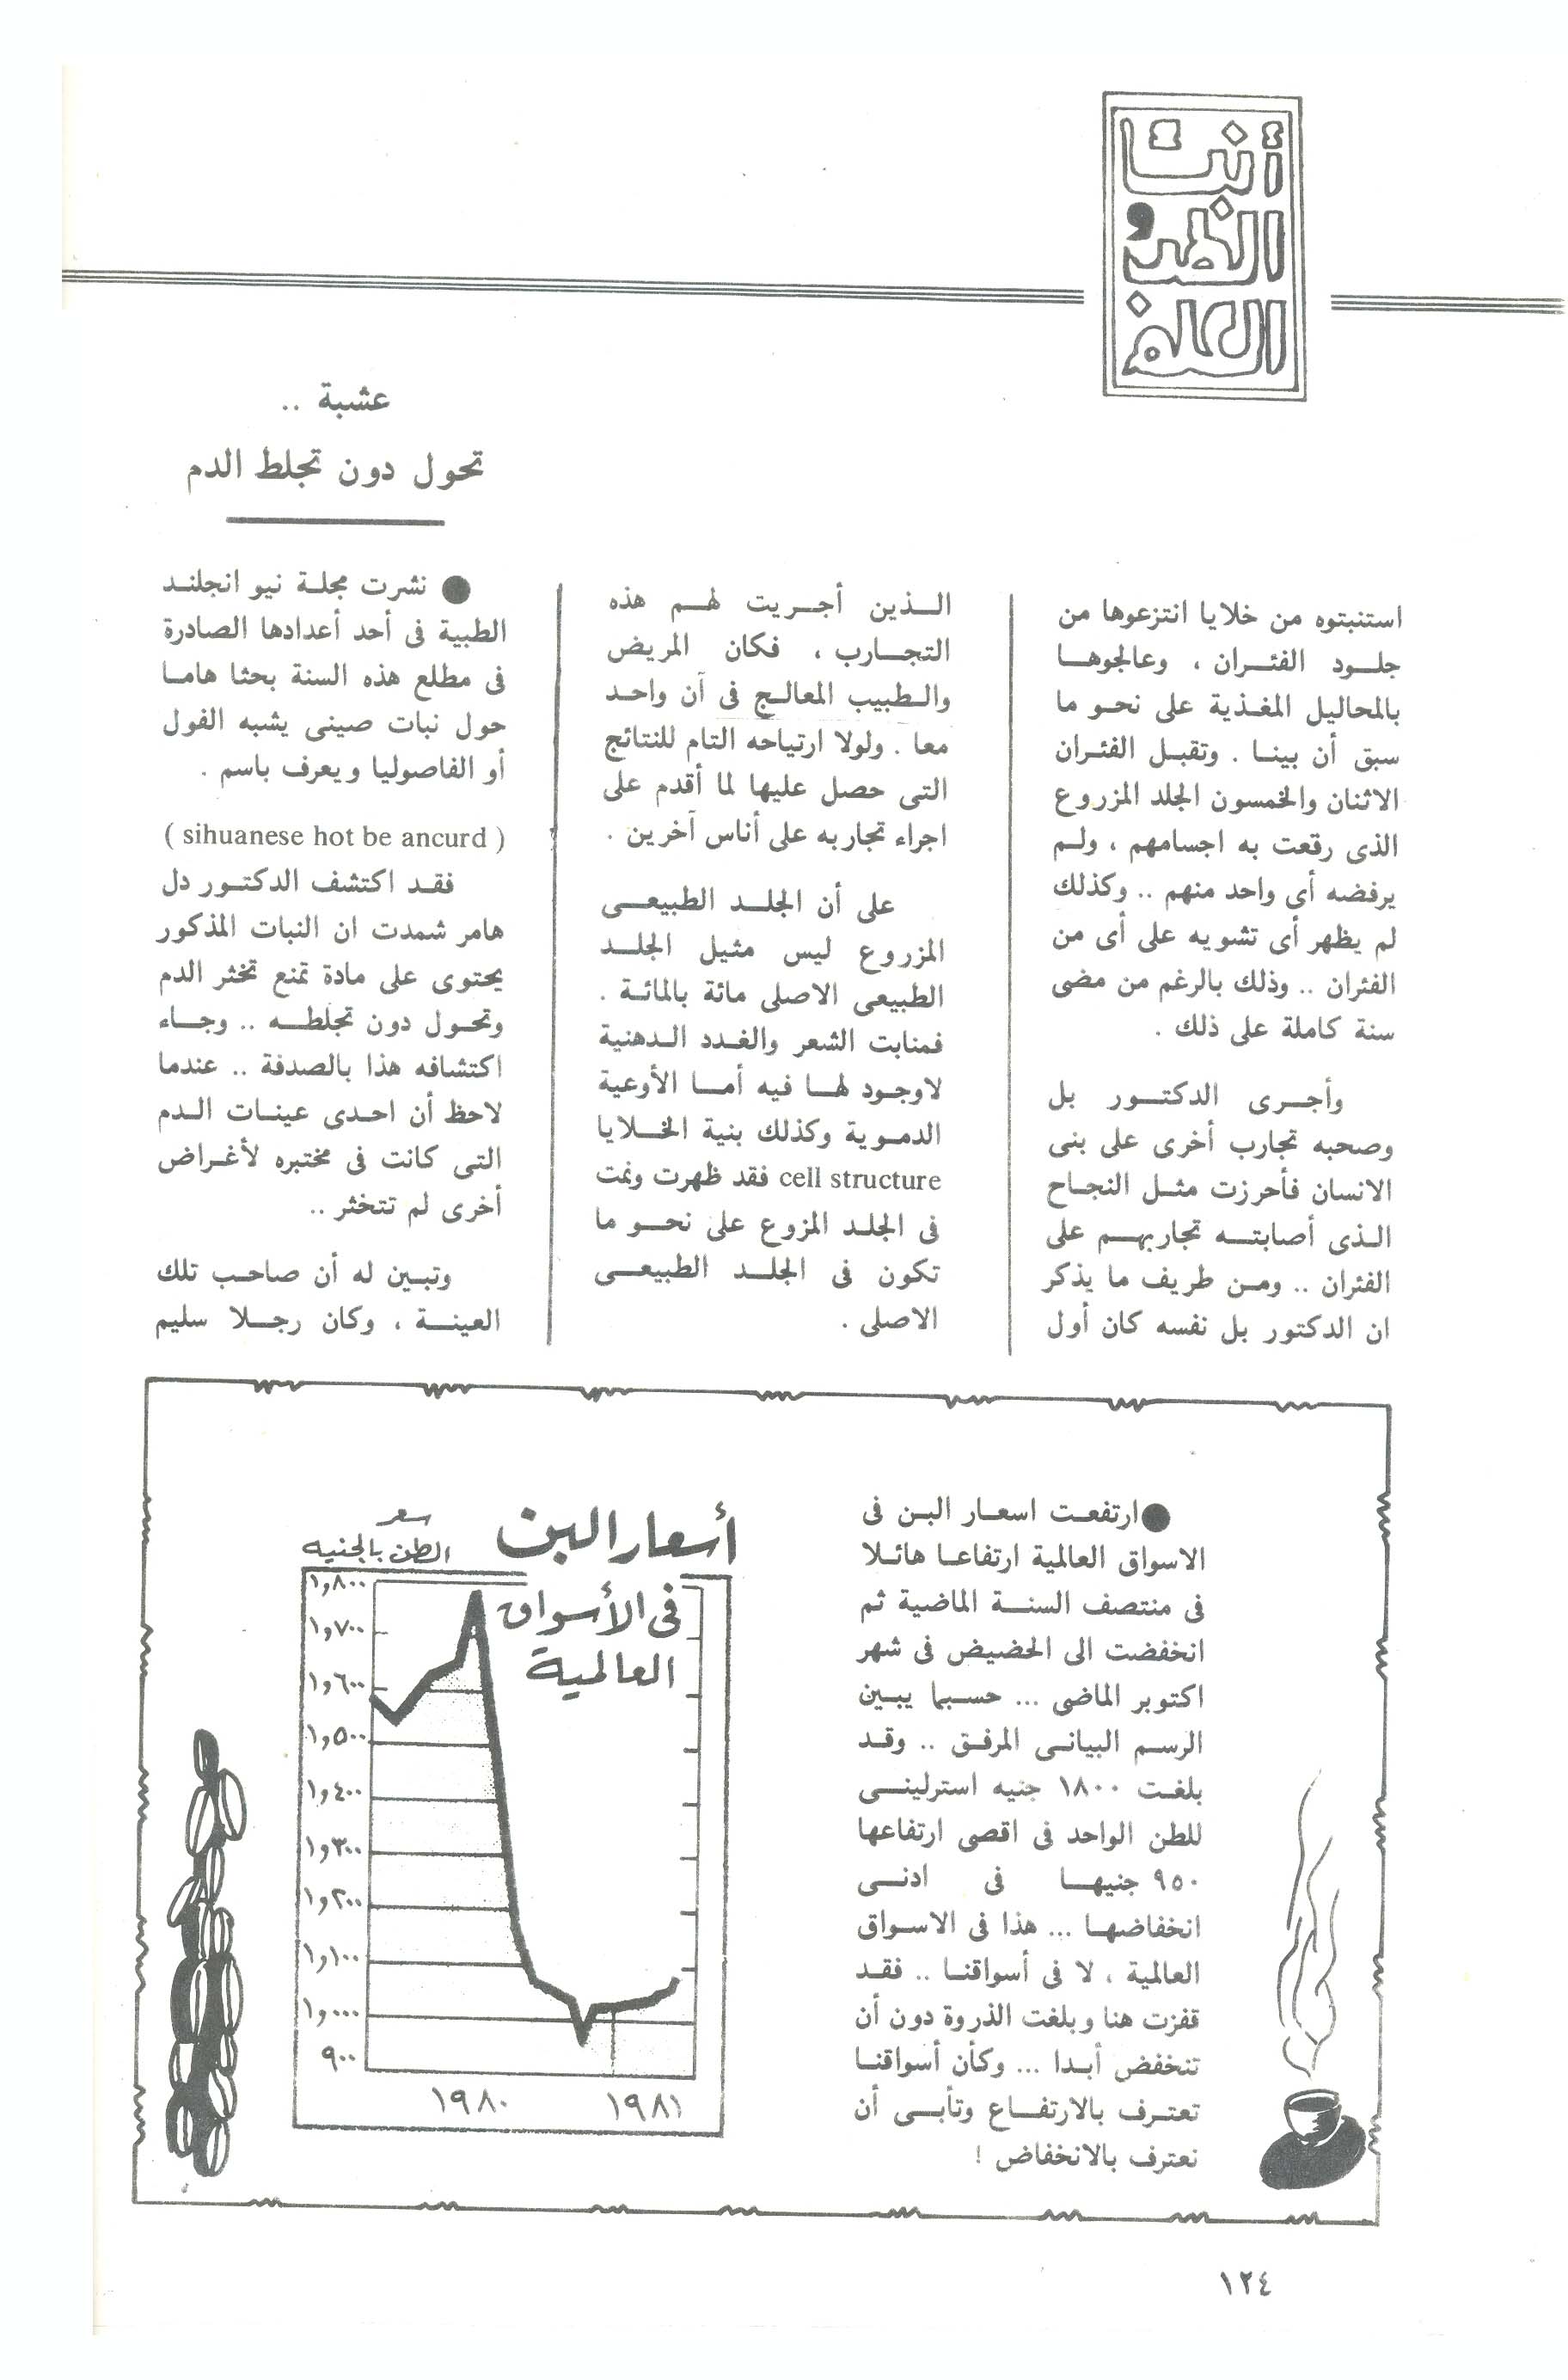 أنت
والطب
والعلم
استنبتوه من خلايا انتزعوها من
جلود الفئران ، وعالجوها
بالمحاليل المغذية على نحو ما
سبق أن بينا . وتقبل الفئران
الاثنان والخمسون الجلد المزروع
الذى رقعت به اجسامهم ، ولم
يرفضه أى واحد منهم .. وكذلك
لم يظهر أى تشويه على أى من
الفئران .. وذلك بالرغم من مضى
سنة كاملة على ذلك .
وأجرى الدكتور بل
وصحبه تجارب أخرى على بنى
الانسان فأحرزت مثل النجاح
الذى أصابته تجاربهم على
الفئران .. ومن طريف ما يذكر
ان الدكتور بل نفسه كان أول
الذين أجريت لهم هذه
التجارب ، فكان المريض
والطبيب المعالج فى آن واحد
معا . ولولا ارتياحه التام للنتائج
التى حصل عليها لما أقدم على
اجراء تجاربه على أناس آخرين .
على أن الجلد الطبيعى
المزروع ليس مثيل الجلد
الطبيعى الاصلى مائة بالمائة .
فمنابت الشعر والغدد الدهنية
لاوجود لها فيه أما الأوعية
الدموية وكذلك بنية الخلايا
cell structure فقد ظهرت ونمت
فى الجلد المزوع على نحو ما
تكون فى الجلد الطبيعى
الاصلى .
عشبة ..
تحول دون تجلط الدم
● نشرت مجلة نيو انجلند
الطبية فى أحد أعدادها الصادرة
فى مطلع هذه السنة بحثا هاما
حول نبات صينى يشبه الفول
أو الفاصوليا ويعرف باسم .
( sihuanese hot be ancurd )
فقد اكتشف الدكتور دل
هامر شمدت ان النبات المذكور
يحتوى على مادة تمنع تخثر الدم
وتحول دون تجلطه .. وجاء
اكتشافه هذا بالصدفة .. عندما
لاحظ أن احدى عينات الدم
التى كانت فى مختبره لأغراض
أخرى لم تتخثر ..
وتبين له أن صاحب تلك
العينة ، وكان رجلا سليم
● ارتفعت اسعار البن فى
الاسواق العالمية ارتفاعا هائلا
فى منتصف السنة الماضية ثم
انخفضت الى الحضيض فى شهر
اكتوبر الماضى ... حسبما يبين
الرسم البيانى المرفق .. وقد
بلغت ١٨٠٠ جنيه استرلينى
للطن الواحد فى اقصى ارتفاعها
٩٥٠ جنيها فى ادنى
انخفاضها ... هذا فى الاسواق
العالمية ، لا فى أسواقنا .. فقد
قفزت هنا وبلغت الذروة دون أن
تنخفض أبدا ... وكأن أسواقنا
تعترف بالارتفاع وتأبى أن
تعترف بالانخفاض !
أسعار البن
فى الأسواق
العالمية
سعر
الطن بالجنيه
١,٨٠٠
١,٧٠٠
١,٦٠٠
١,٥٠٠
١,٤٠٠
١,٣٠٠
١,٢٠٠
١,١٠٠
١,٠٠٠
٩٠٠
١٩٨٠ ١٩٨١
١٢٤